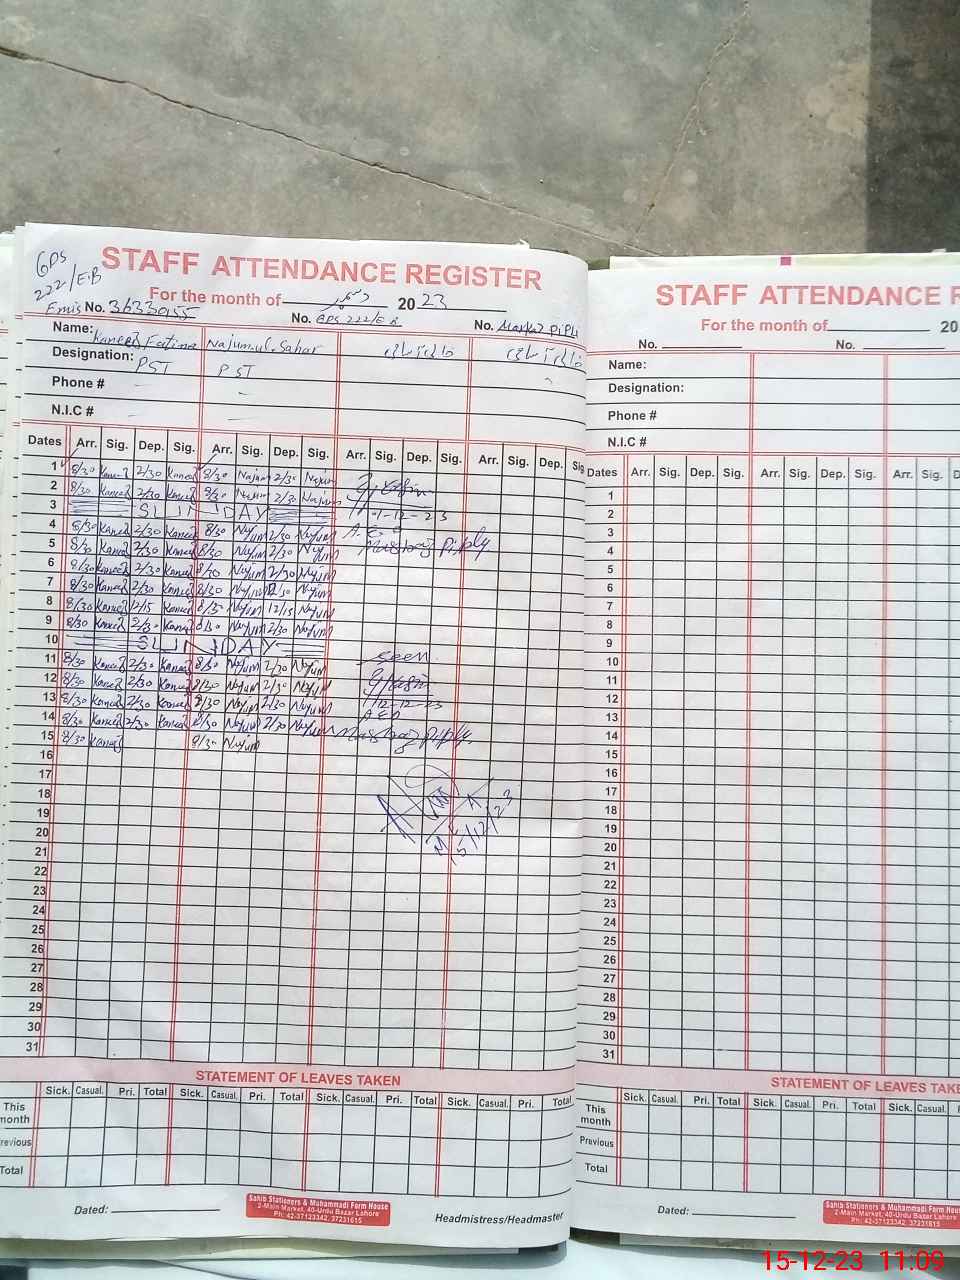 GPS
222/E.B
STAFF ATTENDANCE REGISTER
For the month of دسمبر 2023
Emis No. 36330155 No. GPS 222/E.B No. Markaz Piply
Name: Kaneez Fatima Najum.ul.Sahar
Designation: PST PST
Phone #
N.I.C #
Dates Arr. Sig. Dep. Sig. Arr. Sig. Dep. Sig. Arr. Sig. Dep. Sig. Arr. Sig. Dep. Sig
1 8/30 Kaneez 2/30 Kaneez 8/30 Najum 2/30 Najum
2 8/30 Kaneez 2/30 Kaneez 8/30 Najum 2/30 Najum
3 SUNDAY
4 8/30 Kaneez 2/30 Kaneez 8/30 Najum 2/30 Najum
5 8/30 Kaneez 2/30 Kaneez 8/30 Najum 2/30 Najum
Piply
6 8/30 Kaneez 2/30 Kaneez 8/30 Najum 2/30 Najum
7 8/30 Kaneez 2/30 Kaneez 8/30 Najum 2/30 Najum
8 8/30 Kaneez 12/15 Kaneez 8/30 Najum 12/15 Najum
9 8/30 Kaneez 2/30 Kaneez 8/30 Najum 2/30 Najum
10 SUNDAY
11 8/30 Kaneez 2/30 Kaneez 8/30 Najum 2/30 Najum Seen
12 8/30 Kaneez 2/30 Kaneez 8/30 Najum 2/30 Najum
13 8/30 Kaneez 2/30 Kaneez 8/30 Najum 2/30 Najum 12-12-23
14 8/30 Kaneez 2/30 Kaneez 8/30 Najum 2/30 Najum AEO
Markaz Piply.
15 8/30 Kaneez 8/30 Najum
16
17
18
19
15/12/23
20
21
22
23
24
25
26
27
28
29
30
31
STATEMENT OF LEAVES TAKEN
Sick. Casual. Pri. Total Sick. Casual. Pri. Total Sick. Casual. Pri. Total Sick. Casual. Pri. Total
This
month
revious
Total
Dated:
Sahib Stationers & Muhammadi Form House
2-Main Market, 40-Urdu Bazar Lahore
Ph: 42-37123342, 37231615
Headmistress/Headmaster
STAFF ATTENDANCE R
For the month of 20
No. No.
Name:
Designation:
Phone #
N.I.C #
Dates Arr. Sig. Dep. Sig. Arr. Sig. Dep. Sig. Arr. Sig. D
1
2
3
4
5
6
7
8
9
10
11
12
13
14
15
16
17
18
19
20
21
22
23
24
25
26
27
28
29
30
31
STATEMENT OF LEAVES TAKE
Sick. Casual. Pri. Total Sick. Casual. Pri. Total Sick. Casual. P
This
month
Previous
Total
Dated:
Sahib Stationers & Muhammadi Form House
2-Main Market, 40-Urdu Bazar Lahore
Ph: 42-37123342, 37231615
15-12-23 11:09